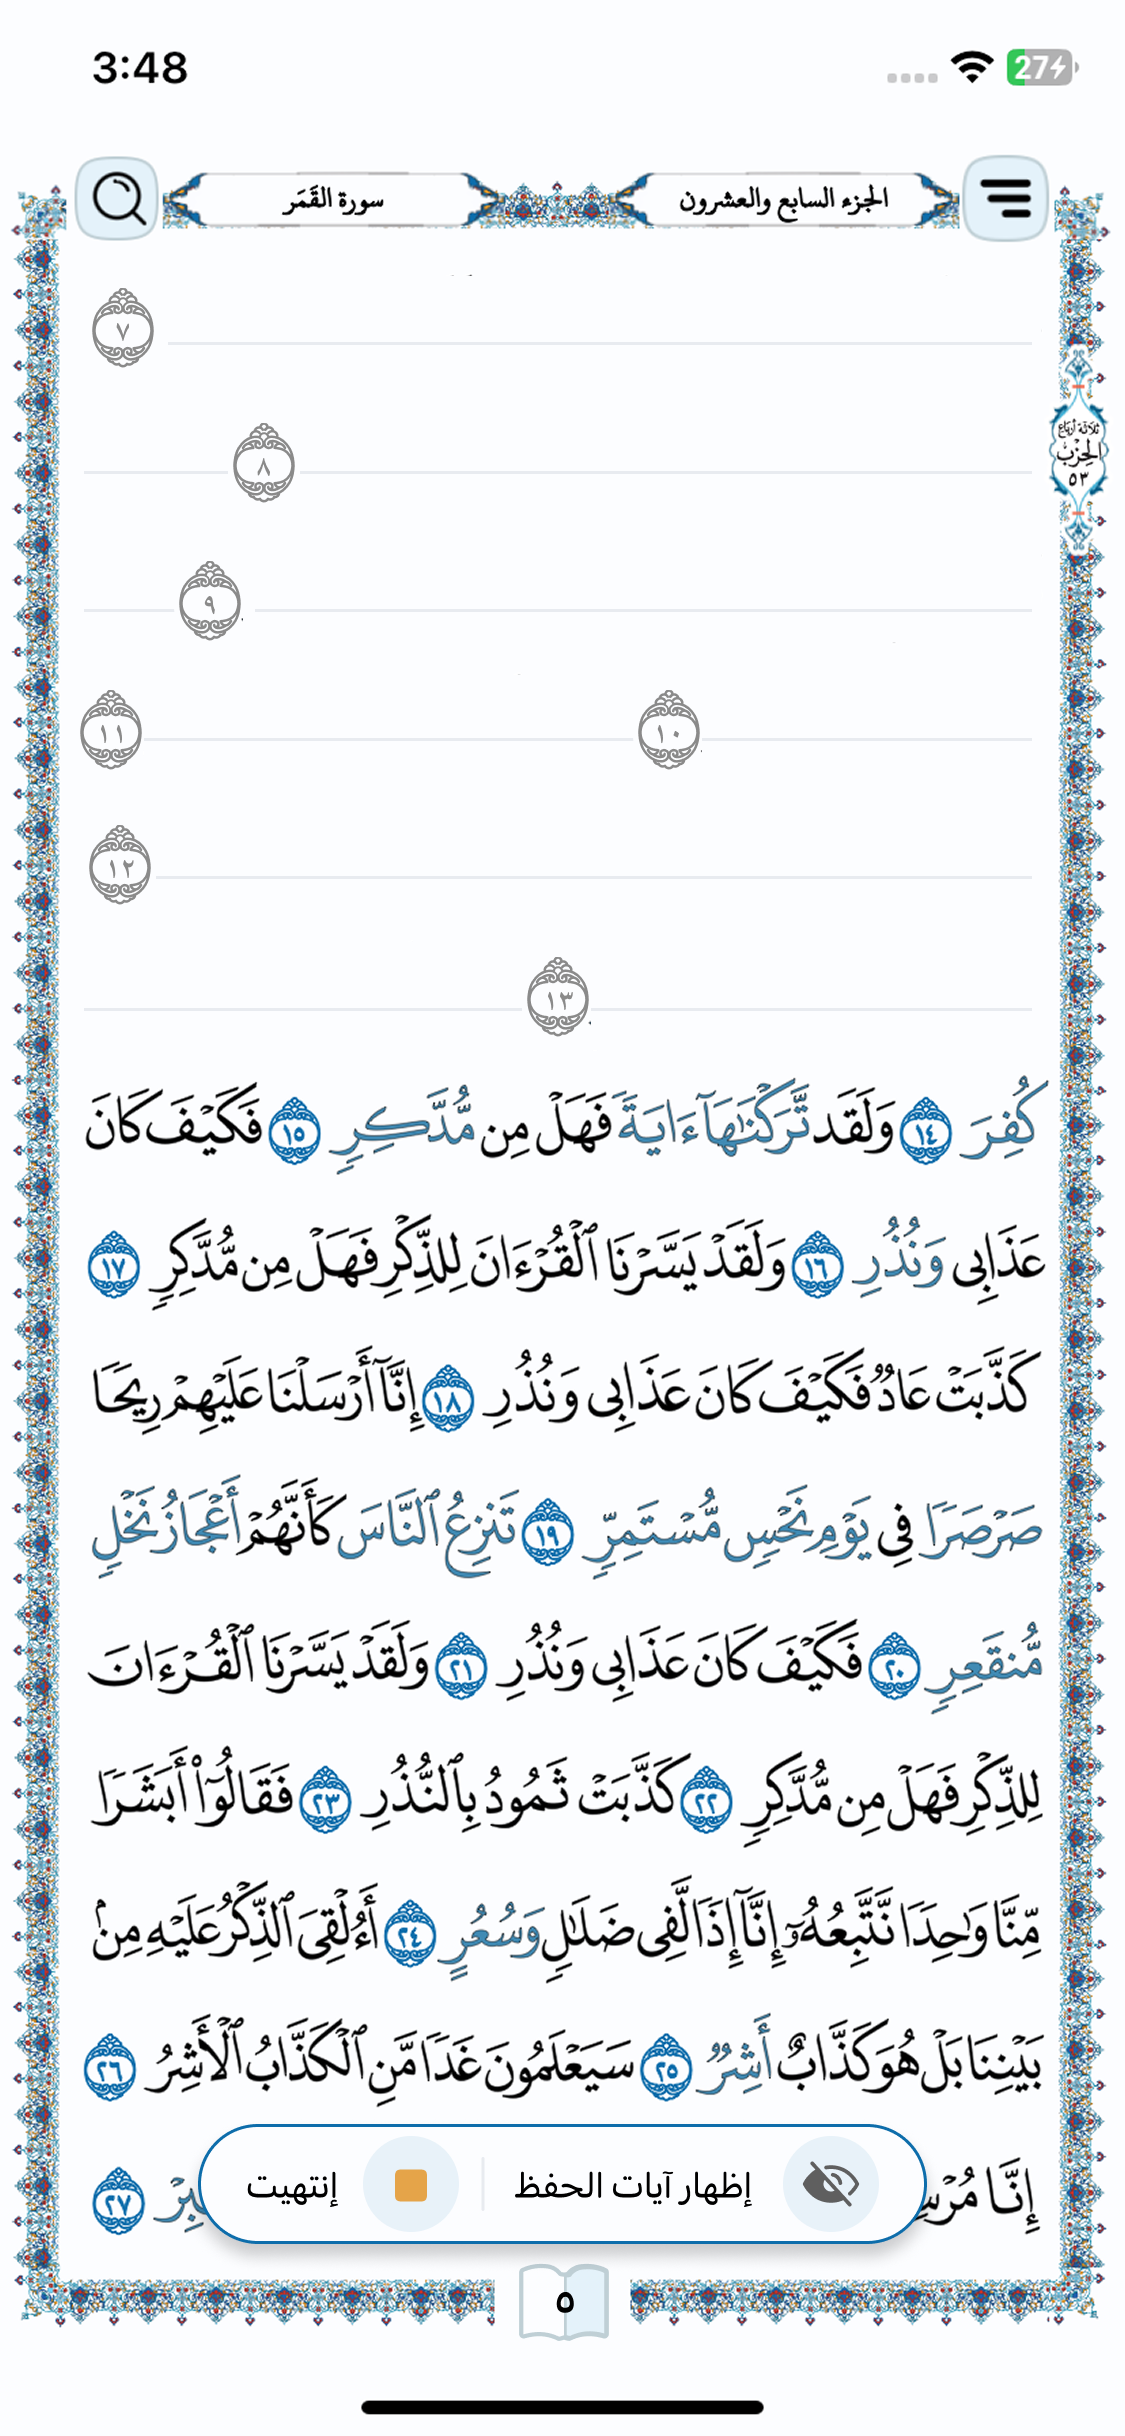 3:48
27
الجزء السابع والعشرون
سورة القَمَر
٧
ثلاثة أرباع
الحزب
٥٣
٨
٩
١٠ ١١
١٢
١٣
كُفِرَ ١٤ وَلَقَد تَّرَكْنَٰهَآ ءَايَةً فَهَلْ مِن مُّدَّكِرٍ ١٥ فَكَيْفَ كَانَ
عَذَابِى وَنُذُرِ ١٦ وَلَقَدْ يَسَّرْنَا ٱلْقُرْءَانَ لِلذِّكْرِ فَهَلْ مِن مُّدَّكِرٍ ١٧
كَذَّبَتْ عَادٌ فَكَيْفَ كَانَ عَذَابِى وَنُذُرِ ١٨ إِنَّآ أَرْسَلْنَا عَلَيْهِمْ رِيحًا
صَرْصَرًا فِى يَوْمِ نَحْسٍ مُّسْتَمِرٍّ ١٩ تَنزِعُ ٱلنَّاسَ كَأَنَّهُمْ أَعْجَازُ نَخْلٍ
مُّنقَعِرٍ ٢٠ فَكَيْفَ كَانَ عَذَابِى وَنُذُرِ ٢١ وَلَقَدْ يَسَّرْنَا ٱلْقُرْءَانَ
لِلذِّكْرِ فَهَلْ مِن مُّدَّكِرٍ ٢٢ كَذَّبَتْ ثَمُودُ بِٱلنُّذُرِ ٢٣ فَقَالُوٓا۟ أَبَشَرًا
مِّنَّا وَٰحِدًا نَّتَّبِعُهُۥٓ إِنَّآ إِذًا لَّفِى ضَلَٰلٍ وَسُعُرٍ ٢٤ أَءُلْقِىَ ٱلذِّكْرُ عَلَيْهِ مِنۢ
بَيْنِنَا بَلْ هُوَ كَذَّابٌ أَشِرٌ ٢٥ سَيَعْلَمُونَ غَدًا مَّنِ ٱلْكَذَّابُ ٱلْأَشِرُ ٢٦
إِنَّا ٢٧
إظهار آيات الحفظ
إنتهيت
٥